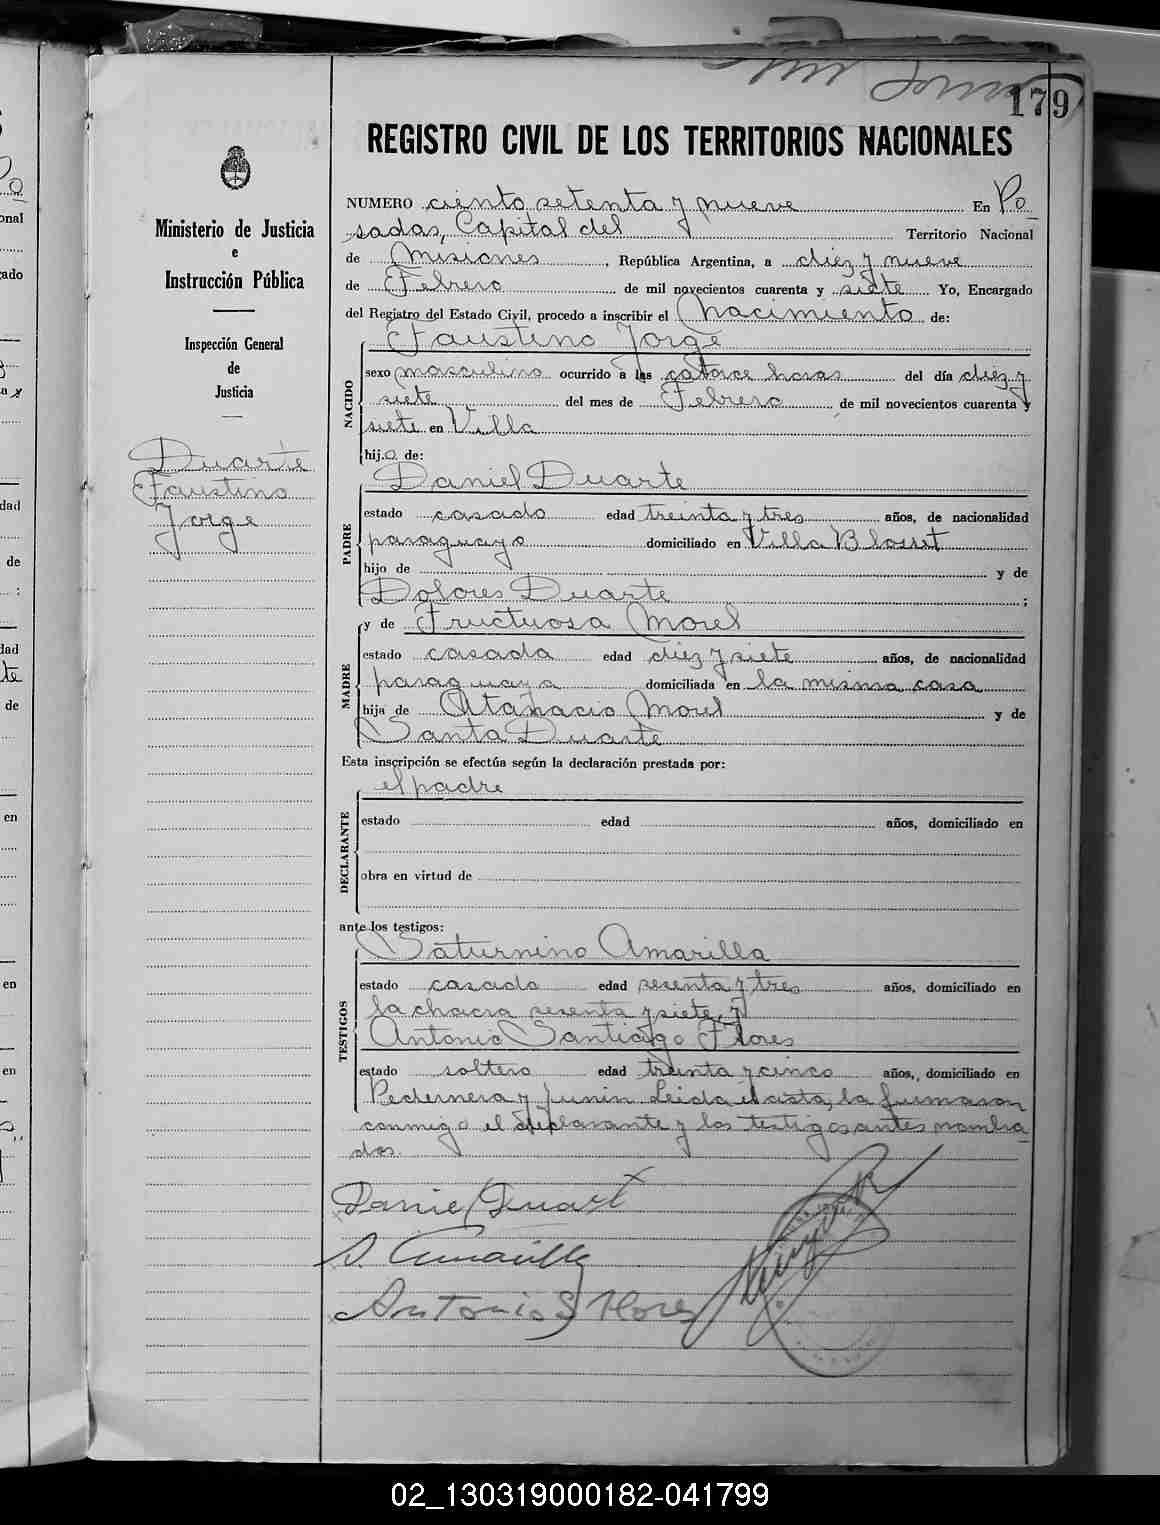 179
REGISTRO CIVIL DE LOS TERRITORIOS NACIONALES
Ministerio de Justicia
e
Instrucción Pública
Inspección General
de
Justicia
Duarte
Faustino
Jorge
NUMERO ciento setenta y nueve En Po
sadas, Capital del Territorio Nacional
de Misiones, República Argentina, a diez y nueve
de Febrero de mil novecientos cuarenta y siete Yo, Encargado
del Registro del Estado Civil, procedo a inscribir el Nacimiento de:
Faustino Jorge
NACIDO
sexo masculino ocurrido a las catorce horas del día diez y
siete del mes de Febrero de mil novecientos cuarenta y
siete en Villa
hij.o de:
Daniel Duarte
PADRE
estado casado edad treinta y tres años, de nacionalidad
paraguayo domiciliado en Villa Blosset
hijo de y de
Dolores Duarte ;
y de Fructuosa Morel
MADRE
estado casada edad diez y siete años, de nacionalidad
paraguaya domiciliada en la misma casa
hija de Atanacio Morel y de
Santa Duarte
Esta inscripción se efectúa según la declaración prestada por:
el padre
DECLARANTE
estado edad años, domiciliado en
obra en virtud de
ante los testigos:
Saturnino Amarilla
TESTIGOS
estado casado edad sesenta y tres años, domiciliado en
la chacra sesenta y siete, y
Antonio Santiago Flores
estado soltero edad treinta y cinco años, domiciliado en
Pedernera y Junin Leida el acta, la firmaron
conmigo el declarante y los testigos antes nombra
dos.
Daniel Duart
S. Amarilla
Antonio S Flores
02_130319000182-041799